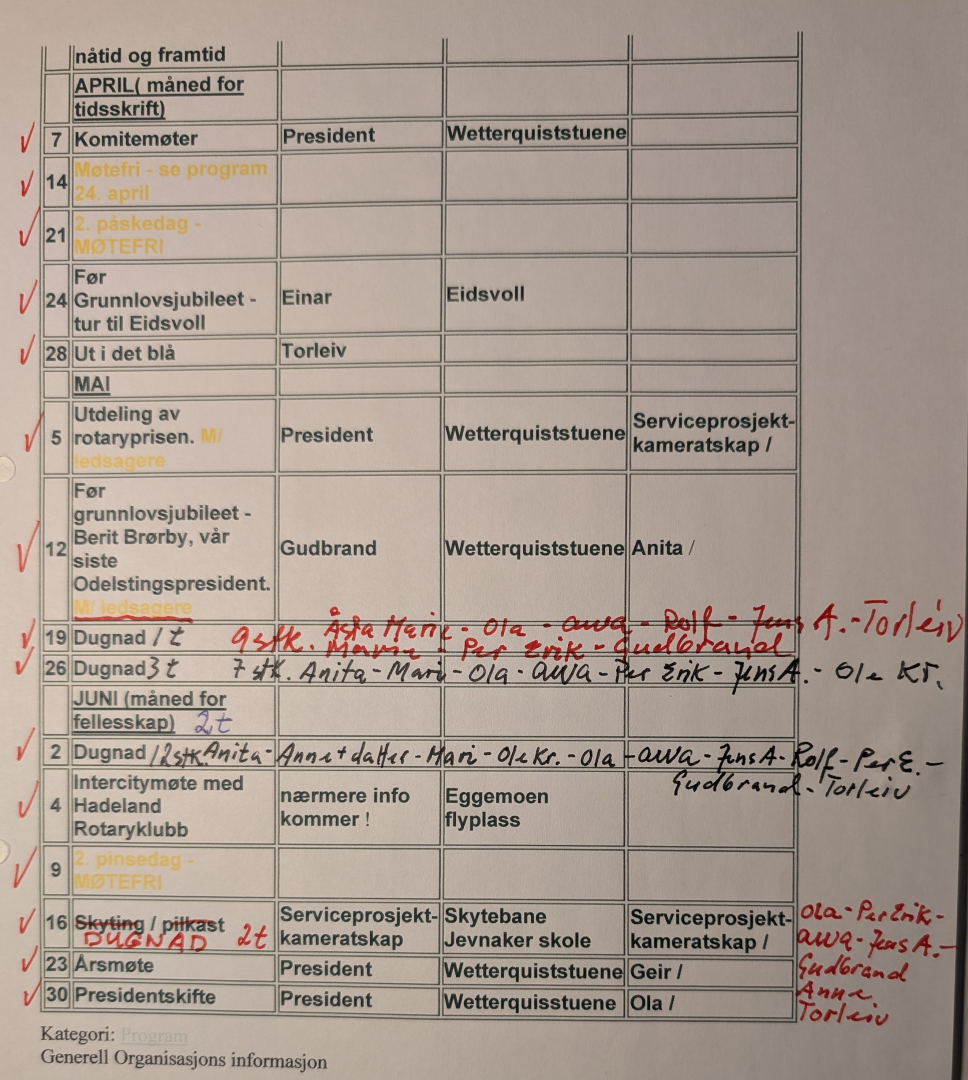 nåtid og framtid
APRIL( måned for
tidsskrift)
7 Komitemøter President Wetterquiststuene
14 Møtefri - se program
24. april
21 2. påskedag -
MØTEFRI
Før
24 Grunnlovsjubileet - Einar Eidsvoll
tur til Eidsvoll
28 Ut i det blå Torleiv
MAI
Utdeling av
5 rotaryprisen. M/ President Wetterquiststuene Serviceprosjekt-
ledsagere kameratskap /
Før
grunnlovsjubileet -
Berit Brørby, vår
12 siste Gudbrand Wetterquiststuene Anita /
Odelstingspresident.
M/ ledsagere
Åsta Marie - Ola - awa - Rolf - Jens A. - Torleiv
19 Dugnad 1 t 9 stk. - Per Erik - Gudbrand
26 Dugnad 3 t 7 stk. Anita - Mari - Ola - awa - Per Erik - Jens A. - Ole Kr.
JUNI (måned for
fellesskap) 2t
2 Dugnad 12 stk. Anita - Anne + datter - Mari - Ole Kr. - Ola - awa - Jens A - Rolf - Per E. -
Gudbrand - Torleiv
Intercitymøte med
4 Hadeland nærmere info Eggemoen
Rotaryklubb kommer ! flyplass
9 2. pinsedag -
MØTEFRI
16 Skyting / pilkast Serviceprosjekt- Skytebane Serviceprosjekt- Ola - Per Erik -
DUGNAD 2t kameratskap Jevnaker skole kameratskap / awa - Jens A. -
23 Årsmøte President Wetterquiststuene Geir / Gudbrand
Anne
30 Presidentskifte President Wetterquisstuene Ola / Torleiv
Kategori: Program
Generell Organisasjons informasjon